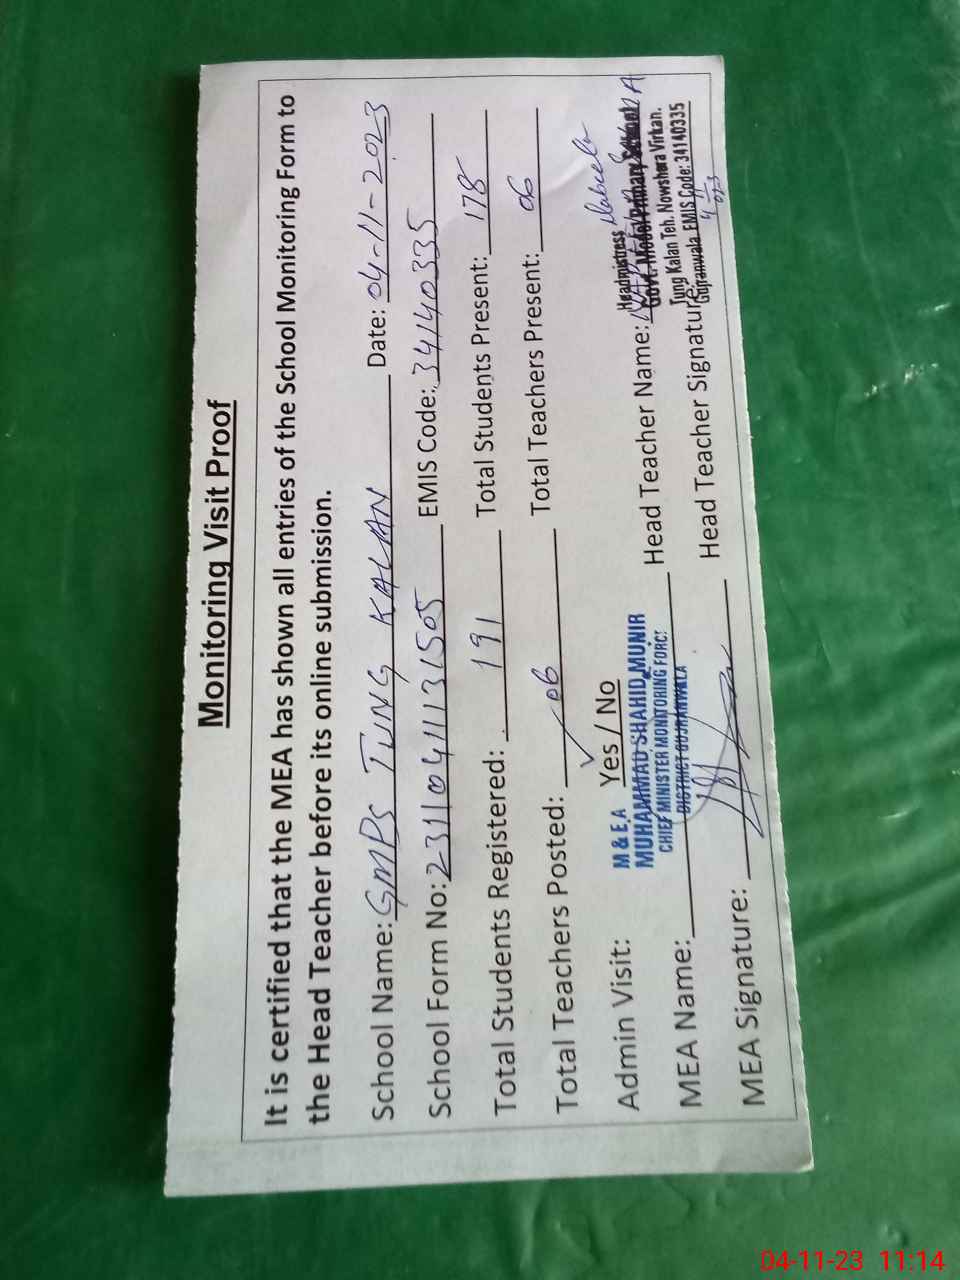 Monitoring Visit Proof
It is certified that the MEA has shown all entries of the School Monitoring Form to
the Head Teacher before its online submission.
School Name: GMPS TUNG KALAN Date: 04-11-2023
School Form No: 231104111131505 EMIS Code: 34140335
Total Students Registered: 191 Total Students Present: 178
Total Teachers Posted: 06 Total Teachers Present: 06
Admin Visit: Yes / No
M & E.A
MUHAMMAD SHAHID MUNIR
CHIEF MINISTER MONITORING FORCE
DISTRICT GUJRANWALA
MEA Name: Head Teacher Name:
Headmistress
Govt. Model Primary School
Tung Kalan Teh. Nowshera Virkan.
Gujranwala EMIS Code: 34140335
MEA Signature: Head Teacher Signature:
04-11-23 11:14